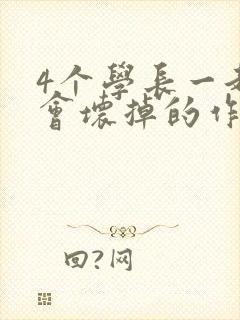 4个學長一
會壞掉的作
回?网